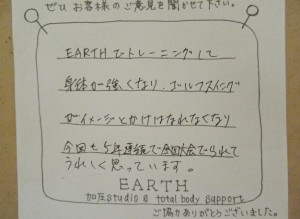 ぜひ お客様のご意見を聞かせて下さい。
EARTHでトレーニングして
身体が強くなり、ゴルフスイング
がイメージとかけはなれなくなり
今回も5年連続で全国大会でられて
うれしく思っています。
EARTH
加圧studio & total body support
ご協力ありがとうございました。